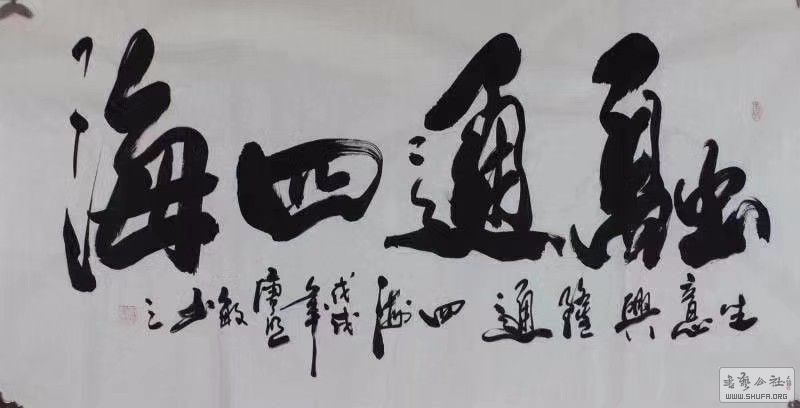 融通四海
生意興隆通四海戊戌年唐恩敏书之
書藝公社
WWW.SHUFA.ORG